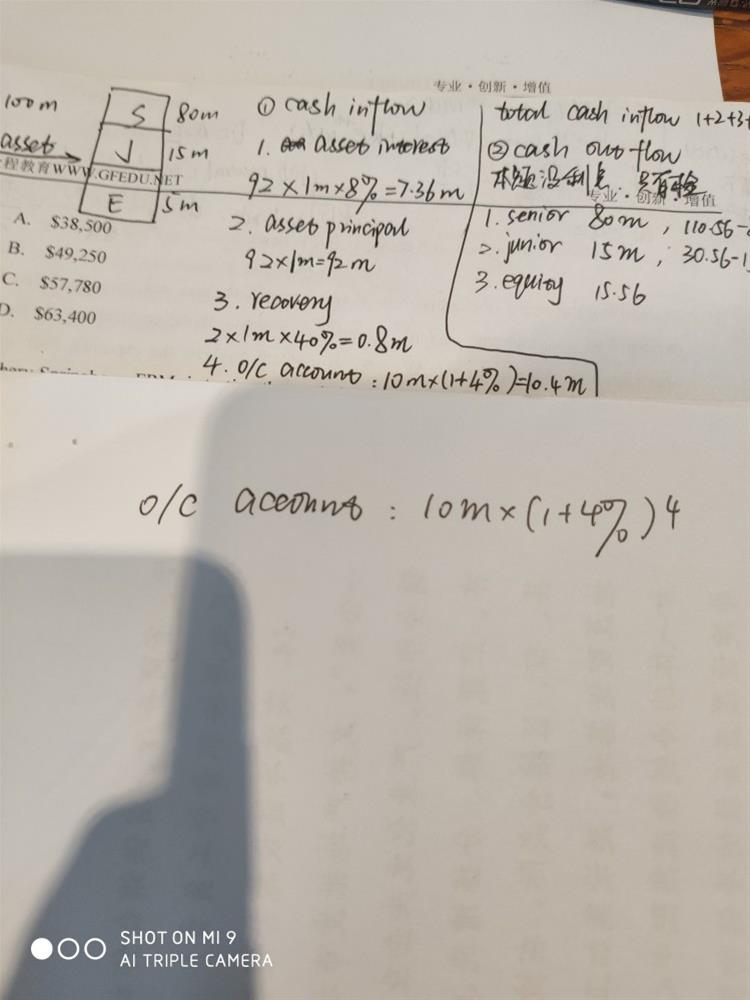 专业·创新·增值
100m
asset
S 80m
J 15m
E 5m
程教育WWW.GFEDU.NET
A. $38,500
B. $49,250
C. $57,780
D. $63,400
① cash inflow
1. asset interest
92×1m×8%=7.36m
2. asset principal
92×1m=92m
3. recovery
2×1m×40%=0.8m
4. O/C account:10m×(1+4%)=10.4m
total cash inflow 1+2+3+
② cash outflow
本题没利息 只有
专业·创新·增值
1. senior 80m, 110.56-
2. junior 15m, 30.56-1
3. equity 15.56
O/C account : 10m×(1+4%)4
SHOT ON MI 9
AI TRIPLE CAMERA